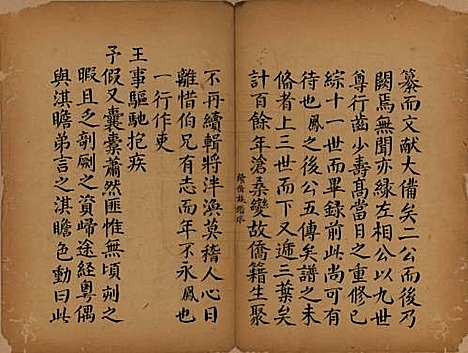 纂而文献大備矣二公而後乃
闕焉無聞亦緣左相公以九世
尊行齒少壽髙當日之重修已
綜十一世而畢録前此尚可有
待也鳳之後公五傳矣譜之未
脩者上三世而又遞三葉矣
計百餘年滄桑變故僑籍生聚
不再續輯將泮渙莫稽人心日
離惜伯兄有志而年不永鳳也
一行作吏
王事驅馳抱疾
子假又囊橐蕭然匪惟無頃刻之
暇且乏剞劂之資歸途經粤偶
與淇瞻弟言之淇瞻色動曰此